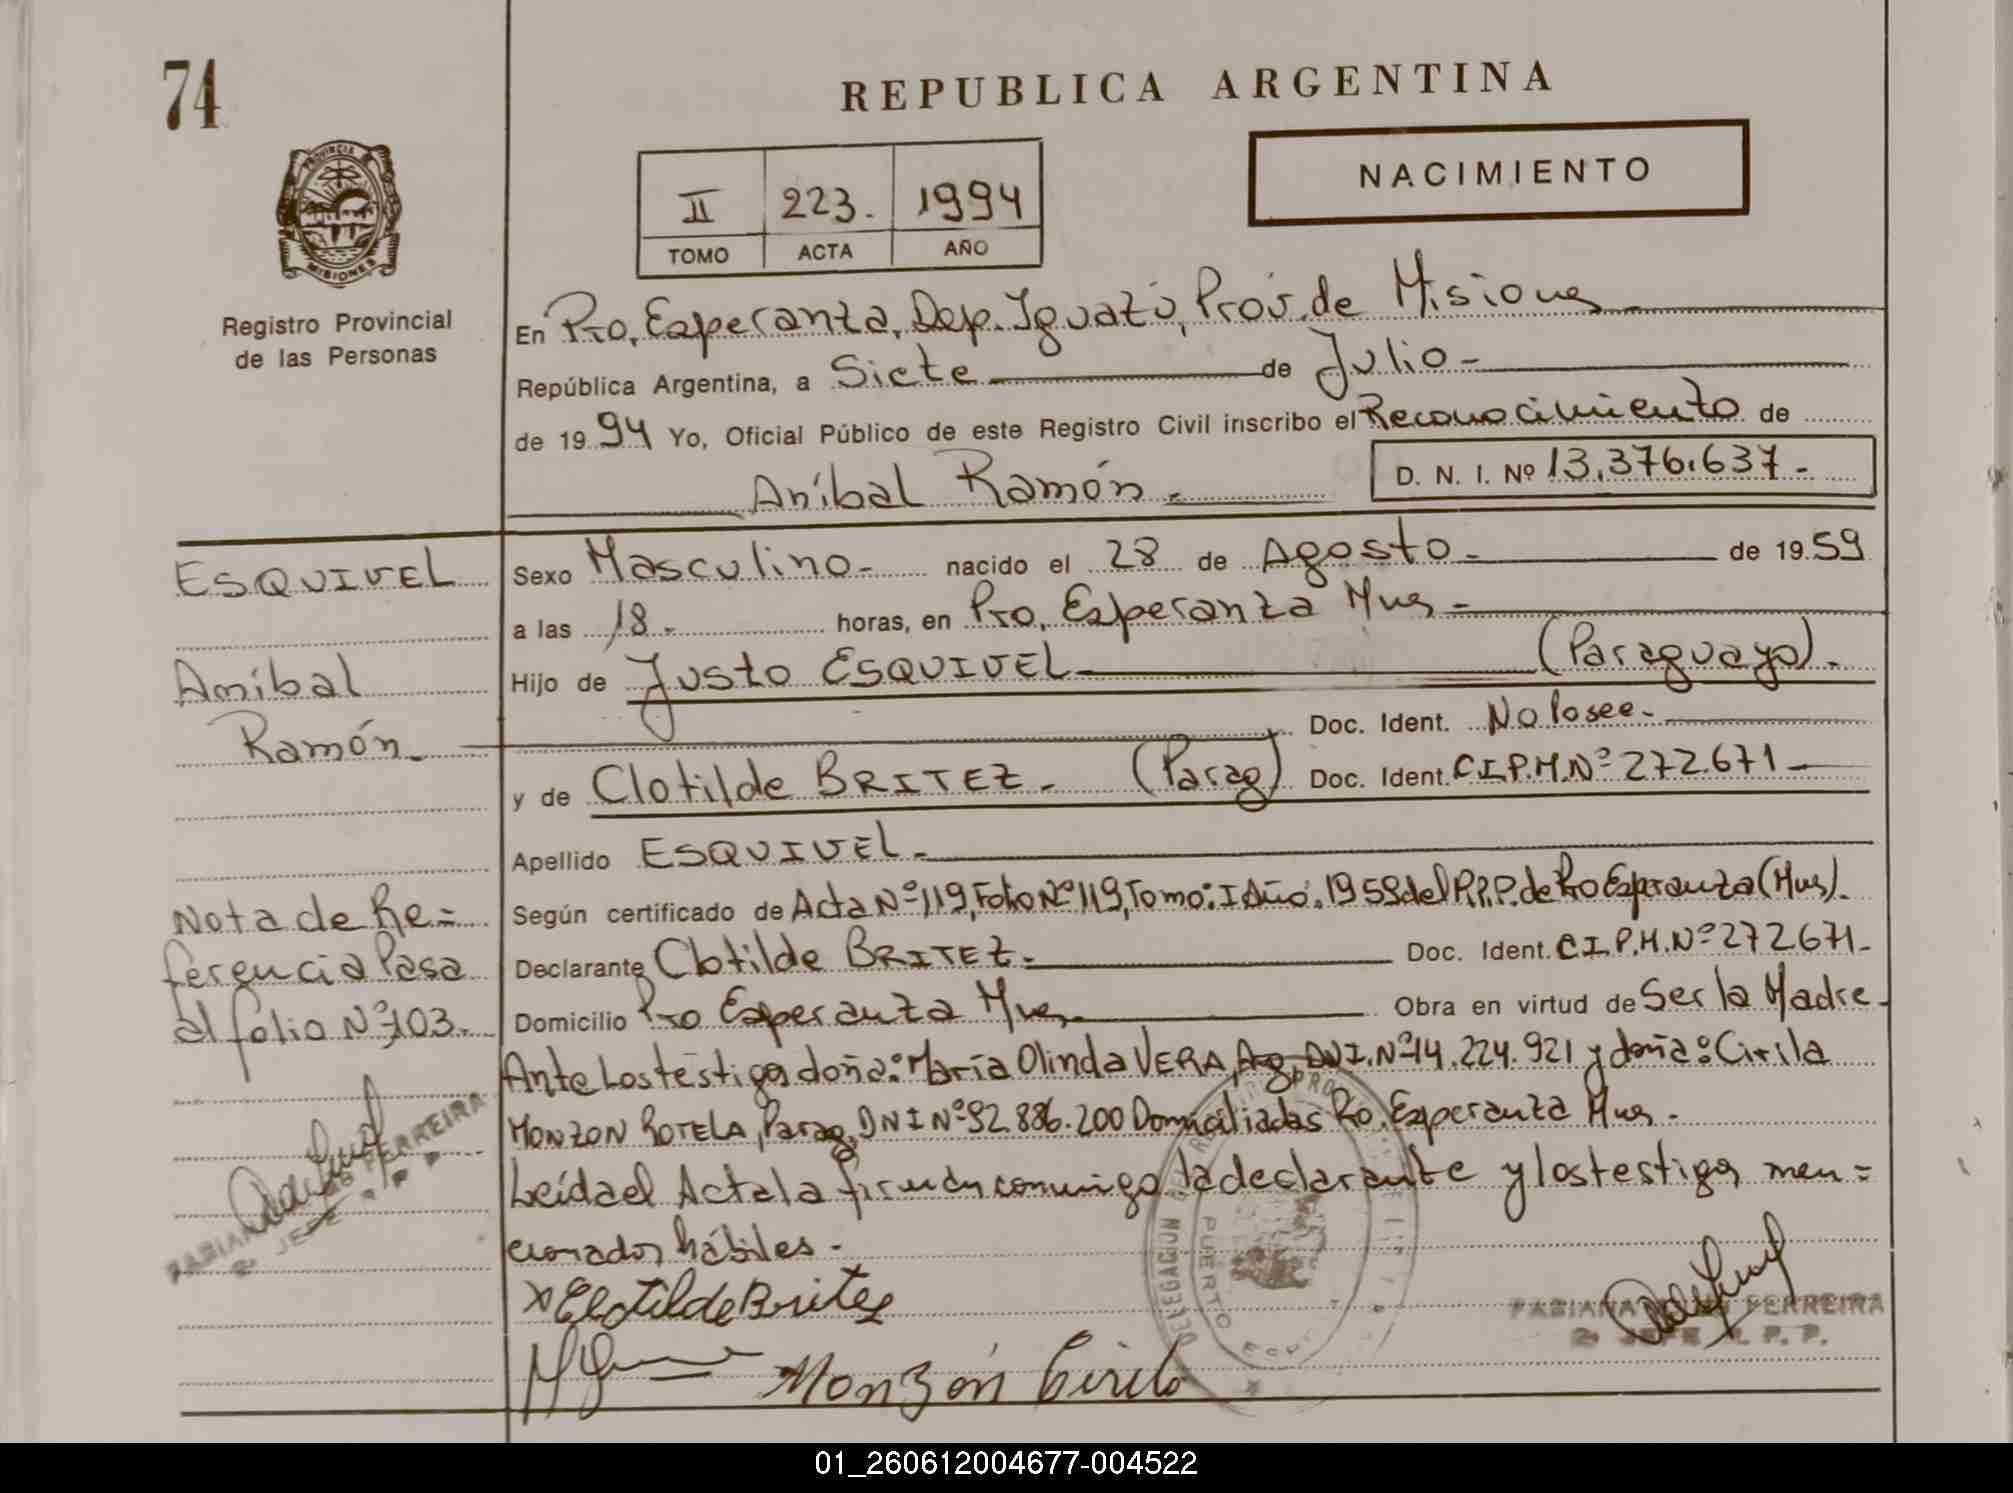 74
REPUBLICA ARGENTINA
PROVINCIA
MISIONES
Registro Provincial
de las Personas
II 223. 1994
TOMO ACTA AÑO
NACIMIENTO
En Pto. Esperanza, Dep. Iguazú, Prov. de Misiones
República Argentina, a Siete de Julio-
de 1994 Yo, Oficial Público de este Registro Civil inscribo el Reconocimiento de
Aníbal Ramón.- D. N. I. Nº 13.376.637-
ESQUIVEL
Aníbal
Ramón-
Nota de Re=
ferencia Pasa
al folio Nº 103.-
Sexo Masculino- nacido el 28 de Agosto- de 1959
a las 18.- horas, en Pto. Esperanza Mnes-
Hijo de Justo ESQUIVEL (Paraguayo).-
Doc. Ident. No Posee-
y de Clotilde BRITEZ.- (Parag) Doc. Ident. C.I.P.M.Nº 272.671-
Apellido ESQUIVEL-
Según certificado de Acta Nº 119, Folio Nº 119, Tomo: I Año: 1959 del R.P.P. de Pto Esperanza (Mnes).
Declarante Clotilde BRITEZ- Doc. Ident. C.I.P.M.Nº 272671-
Domicilio Pto Esperanza Mnes- Obra en virtud de Ser la Madre-
Ante Los testigos doña: María Olinda VERA, Arg, DNI. Nº 14.224.921 y doña: Cirila
MONZON ROTELA, Parag, DNI Nº 92.886.200 Domiciliadas Pto. Esperanza Mnes-
Leída el Acta la firman conmigo la declarante y los testigos men=
cionados hábiles-
x Clotilde Britez
Monzón Cirila
FABIANA FERREIRA
2º JEFE R. P. P.
FABIANA FERREIRA
2º JEFE R. P. P.
DELEGACION
PUERTO
01_260612004677-004522